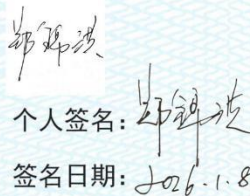 郑锦洪
个人签名：郑锦洪
签名日期：2026.1.8